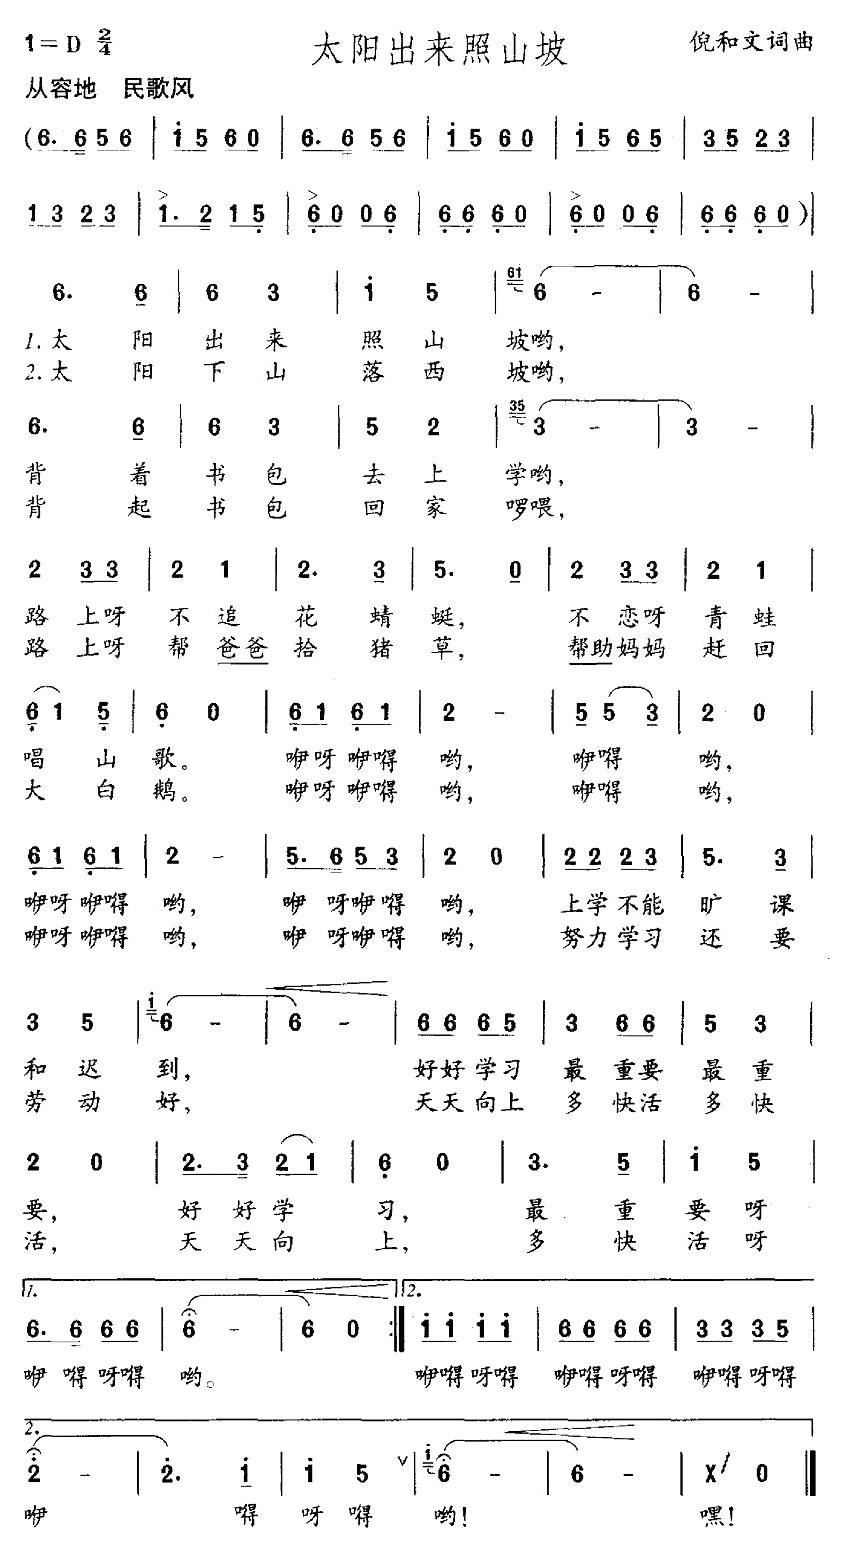 1=D 2/4 太阳出来照山坡 倪和文词曲
从容地 民歌风
(6. 6 5 6 | i 5 6 0 | 6. 6 5 6 | i 5 6 0 | i 5 6 5 | 3 5 2 3 |
1 3 2 3 | 1. 2 1 5 | 6 0 0 6 | 6 6 6 0 | 6 0 0 6 | 6 6 6 0 )|
6. 6 | 6 3 | i 5 | 61 6 - | 6 - |
1.太 阳 出 来 照 山 坡哟，
2.太 阳 下 山 落 西 坡哟，
6. 6 | 6 3 | 5 2 | 35 3 - | 3 - |
背 着 书 包 去 上 学哟，
背 起 书 包 回 家 啰喂，
2 3 3 | 2 1 | 2. 3 | 5. 0 | 2 3 3 | 2 1 |
路 上呀 不 追 花 蜻 蜓， 不 恋呀 青 蛙
路 上呀 帮 爸爸 拾 猪 草， 帮助妈妈 赶 回
6 1 5 | 6 0 | 6 1 6 1 | 2 - | 5 5 3 | 2 0 |
唱 山 歌。 咿呀 咿嘚 哟， 咿嘚 哟，
大 白 鹅。 咿呀 咿嘚 哟， 咿嘚 哟，
6 1 6 1 | 2 - | 5. 6 5 3 | 2 0 | 2 2 2 3 | 5. 3 |
咿呀 咿嘚 哟， 咿 呀咿嘚 哟， 上学 不能 旷 课
咿呀 咿嘚 哟， 咿 呀咿嘚 哟， 努力 学习 还 要
3 5 | i 6 - | 6 - | 6 6 6 5 | 3 6 6 | 5 3 |
和 迟 到， 好好 学习 最 重要 最 重
劳 动 好， 天天 向上 多 快活 多 快
2 0 | 2. 3 2 1 | 6 0 | 3. 5 | i 5 |
要， 好 好 学 习， 最 重 要 呀
活， 天 天 向 上， 多 快 活 呀
1. 2.
6. 6 6 6 | 6 - | 6 0 :| i i i i | 6 6 6 6 | 3 3 3 5 |
咿 嘚 呀嘚 哟。 咿嘚 呀嘚 咿嘚 呀嘚 咿嘚 呀嘚
2.
2 - | 2. i | i 5 ∨ | i 6 - | 6 - | X 0 ‖
咿 嘚 呀 嘚 哟！ 嘿！